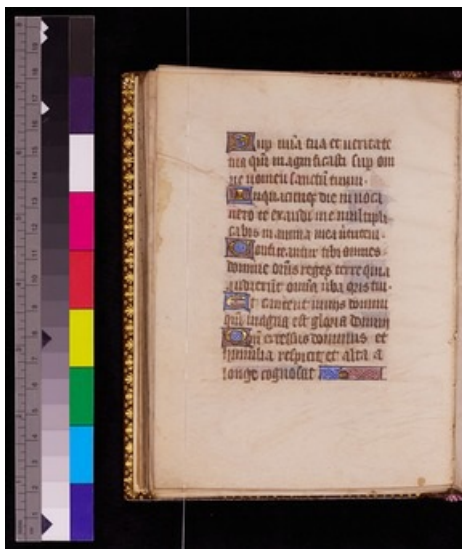 Sup miā tua et ueritate
tua qm̄ magnificasti sup om
ne nomen sanctū tuum.
In quacumq; die inuoca
uero te exaudi me multipli
cabis in anima mea uirtutem.
Confiteantur tibi omnes
domine om̄s reges terre quia
audierūt omīa uba oris tui.
Et cantent in uiis domini
qm̄ magna est gloria domini
Qm̄ excelsus dominus et
humilia respicit et alta a
longe cognoscit